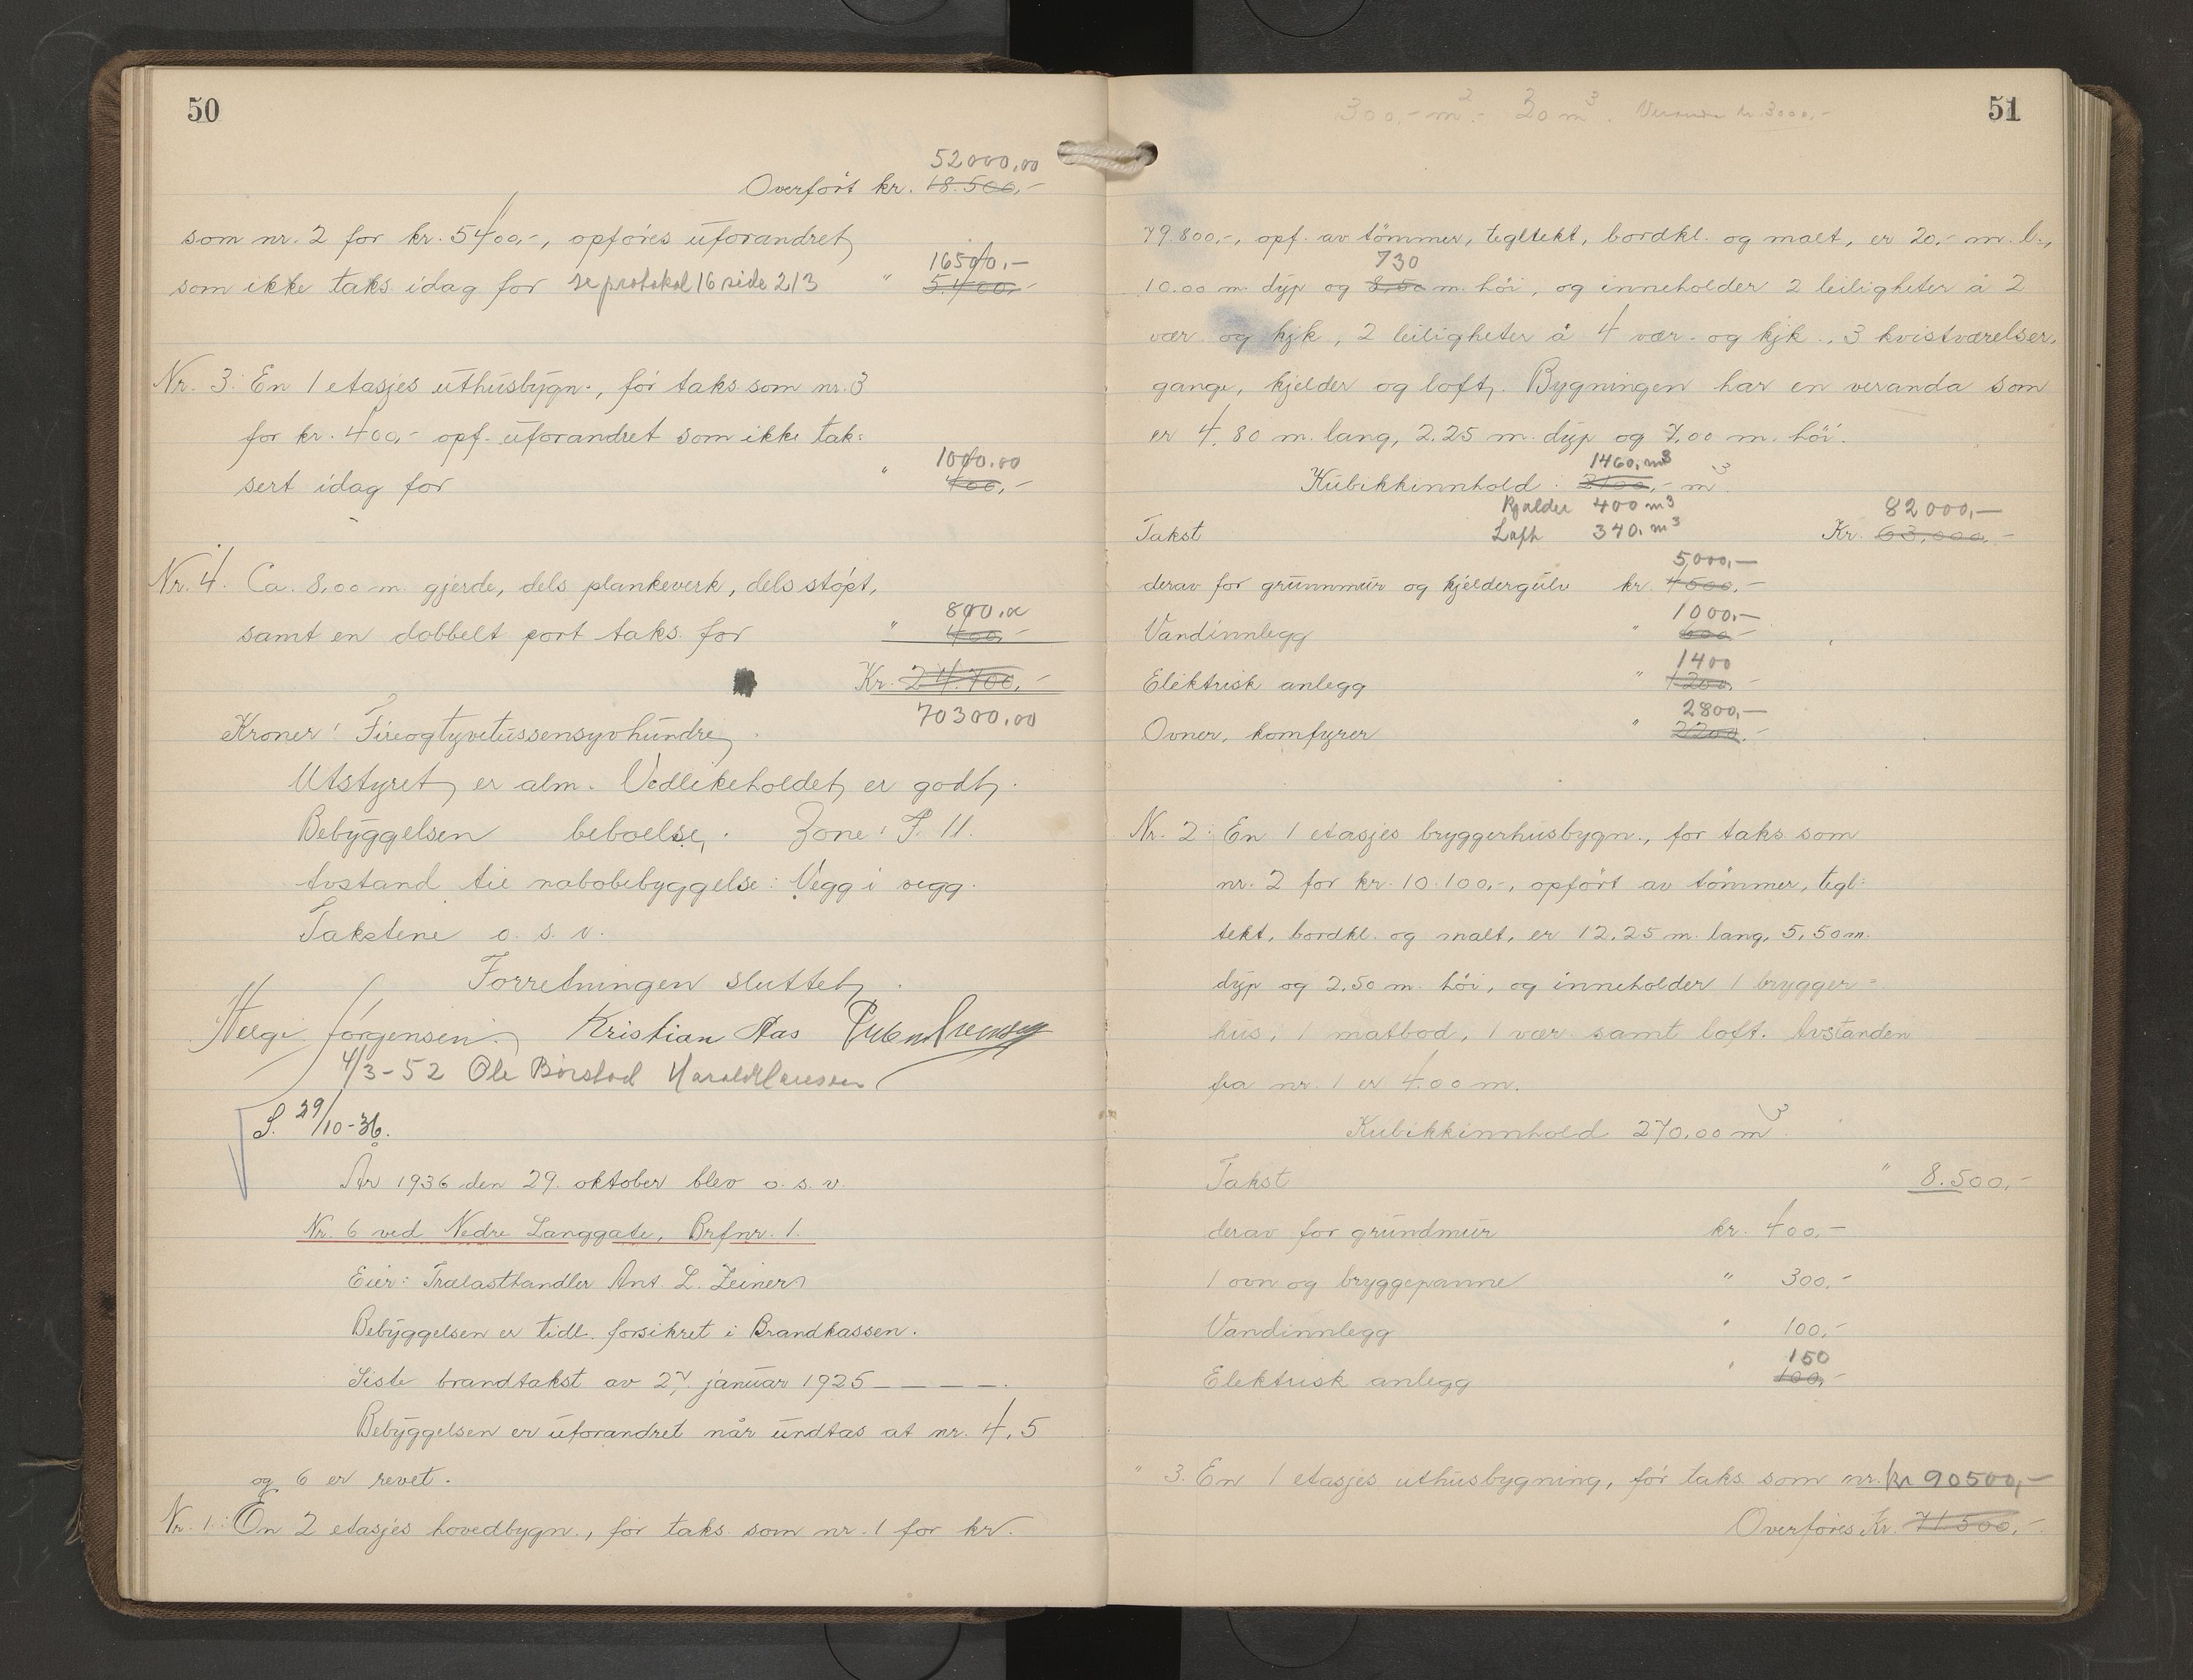 50
52000,00
Overført kr. 18.500,-
som nr. 2 for kr. 5400,-, opføres uforandret,
16500,-
som ikke taks. idag for se protokol 16 side 213 " 5.400,-
Nr. 3: En 1 etasjes uthusbygn., før taks. som nr. 3
for kr. 400,- opf. uforandret som ikke tak=
1000.00
sert idag for " 400,-
Nr. 4. Ca. 8,00 m. gjerde, dels plankeverk, dels støpt,
800.00
samt en dobbelt port taks. for " 400,-
Kr. 24.700,-
70300,00
Kroner: Fireogtyvetussensyvhundre.
Utstyret er alm. Vedlikeholdet er godt.
Bebyggelsen beboelse. Zone: F. 11.
Avstand til nabobebyggelse: Vegg i vegg.
Takstene o. s. v.
Forretningen sluttet.
Helge Jørgensen. Kristian Aas
4/3-52 Ole Børstad Harald Hansen
S. 29/10-36.
År 1936 den 29. oktober blev o. s. v.
Nr. 6 ved Nedre Langgate, Brfnr. 1.
Eier: Trælasthandler Ant. L. Zeiner
Bebyggelsen er tidl. forsikret i Brandkassen.
Siste brandtakst av 27. januar 1925 – – – –.
Bebyggelsen er uforandret når undtas at nr. 4, 5
og 6 er revet.
Nr. 1.: En 2 etasjes hovedbygn., før taks. som nr. 1 for kr.
51
300,- m². 20 m³. Veranda kr. 3000,-
79.800,-, opf. av tømmer, tegltekt, bordkl. og malt, er 20,- m. l.,
730
10.00 m. dyp og 8,50 m. høi, og inneholder 2 leiligheter à 2
vær. og kjk., 2 leiligheter à 4 vær. og kjk., 3 kvistværelser,
gange, kjelder og loft. Bygningen har en veranda som
er 4,80 m. lang, 2.25 m. dyp og 7,00 m. høi.
1460, m³
Kubikkinnhold: 2100,- m³.
Kjælder 400 m³
82000,-
Takst Loft 340, m³ Kr. 63,000,-
5,000,-
derav for grunnmur og kjeldergulv kr. 4500,-
1000,-
Vandinnlegg " 600,-
1400
Elektrisk anlegg " 1200,-
2800,-
Ovner, komfyrer " 2200,-
Nr. 2: En 1 etasjes bryggerhusbygn., før taks. som
nr. 2 for kr. 10.100,-, opført av tømmer, tegl=
tekt, bordkl. og malt, er 12,25 m. lang, 5,50 m.
dyp og 2,50 m. høi, og inneholder 1 brygger=
hus, 1 matbod, 1 vær. samt loft. Avstanden
fra nr. 1 er 4.00 m.
Kubikkinnhold 270.00 m³.
Takst " 8.500,-
derav for grundmur kr. 400,-
1 ovn og bryggepanne " 300,-
Vandinnlegg " 100,-
150
Elektrisk anlegg " 100,-
" 3. En 1 etasjes uthusbygning, før taks. som nr. kr 90500,-
Overføres Kr. 71.500,-